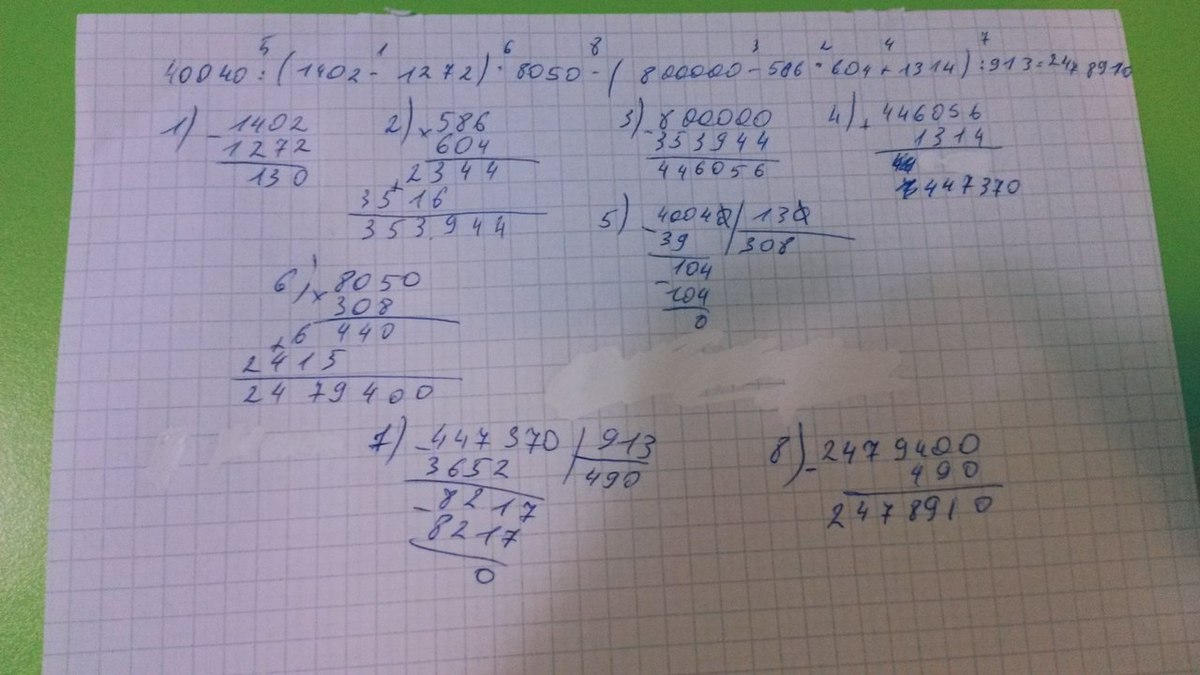 5 1 6 8 3 2 4 7
40040 : (1402 - 1272) · 8050 - (800000 - 586 · 604 + 1314) : 913 = 2478910
1) - 1402
1272
130
2) × 586
604
+ 2344
3516
353944
3) - 800000
353944
446056
4) + 446056
1314
447370
5) - 40040 | 130
39 | 308
- 104
104
0
6) × 8050
308
+ 6 440
2415
2479400
7) - 447370 | 913
3652 | 490
- 8217
8217
0
8) - 2479400
490
2478910